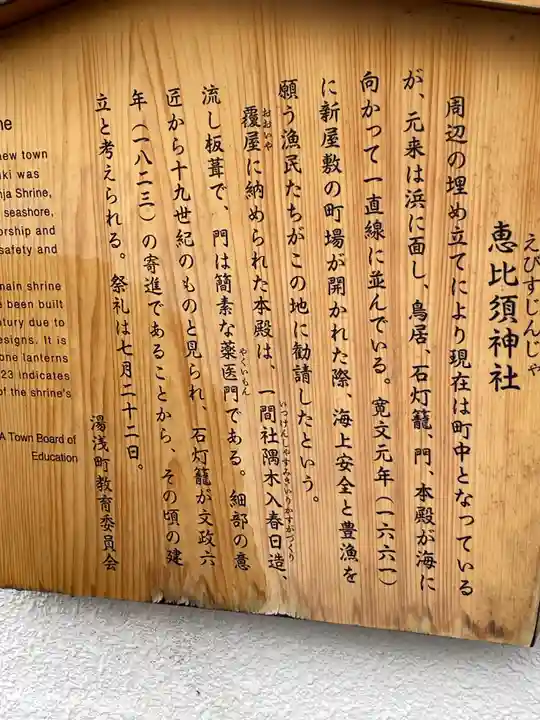 えびすじんじゃ
恵比須神社
周辺の埋め立てにより現在は町中となっている
が、元来は浜に面し、鳥居、石灯籠、門、本殿が海に
向かって一直線に並んでいる。寛文元年（一六六一）
に新屋敷の町場が開かれた際、海上安全と豊漁を
願う漁民たちがこの地に勧請したという。
おおいや
いっけんしゃすみきいりかすがづくり
覆屋に納められた本殿は、一間社隅木入春日造、
やくいもん
流し板葺で、門は簡素な薬医門である。細部の意
匠から十九世紀のものと見られ、石灯籠が文政六
年（一八二三）の寄進であることから、その頃の建
立と考えられる。祭礼は七月二十二日。
湯浅町教育委員会
ne
new town
uki was
nja Shrine,
seashore,
orship and
safety and
main shrine
e been built
ntury due to
esigns. It is
one lanterns
23 indicates
of the shrine's
A Town Board of
Education